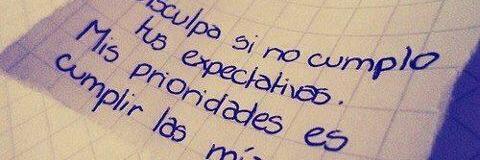 Disculpa si no cumplo
tus expectativas.
Mis prioridades es
cumplir las mías